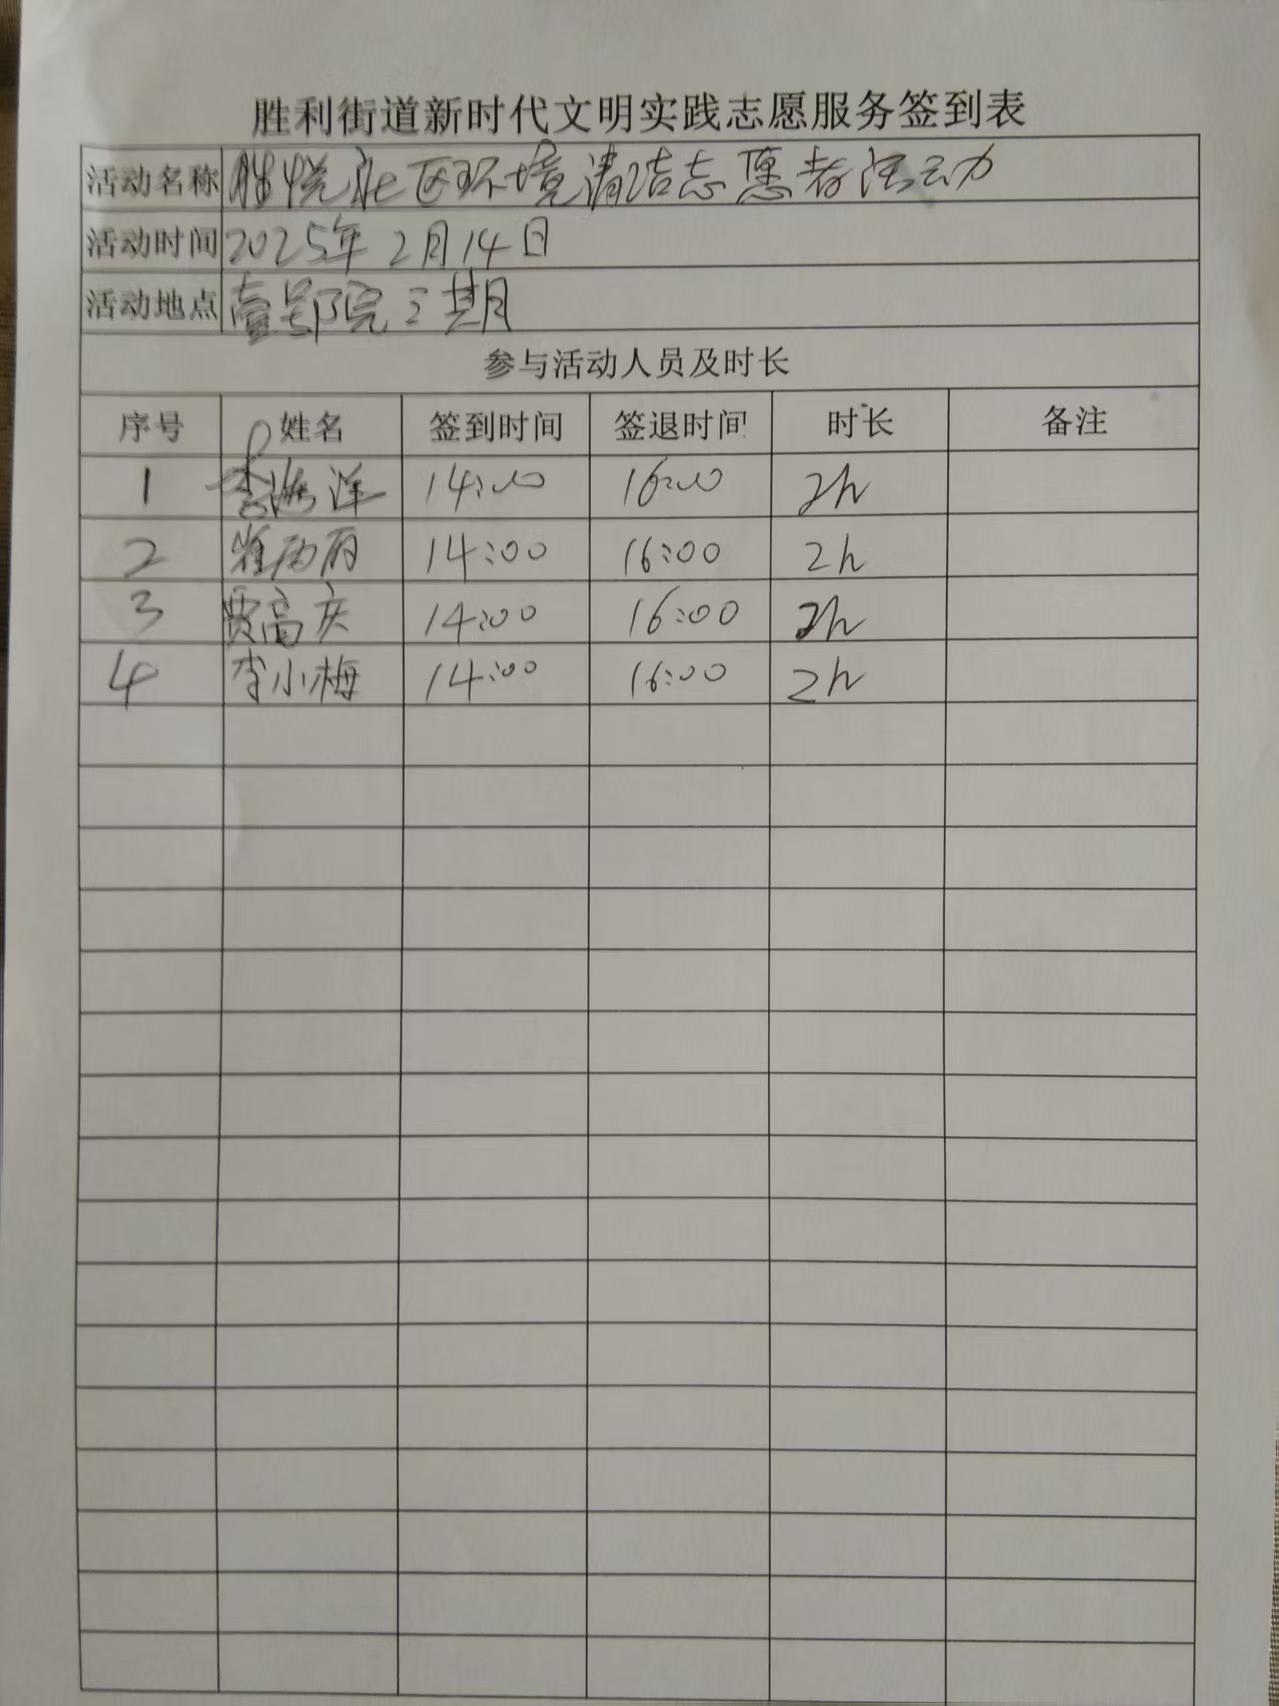 胜利街道新时代文明实践志愿服务签到表
活动名称 胜悦社区环境清洁志愿者活动
活动时间 2025年2月14日
活动地点 壹号院三期
参与活动人员及时长
序号 姓名 签到时间 签退时间 时长 备注
1 李海洋 14:00 16:00 2h
2 崔丽 14:00 16:00 2h
3 贾高庆 14:00 16:00 2h
4 李小梅 14:00 16:00 2h